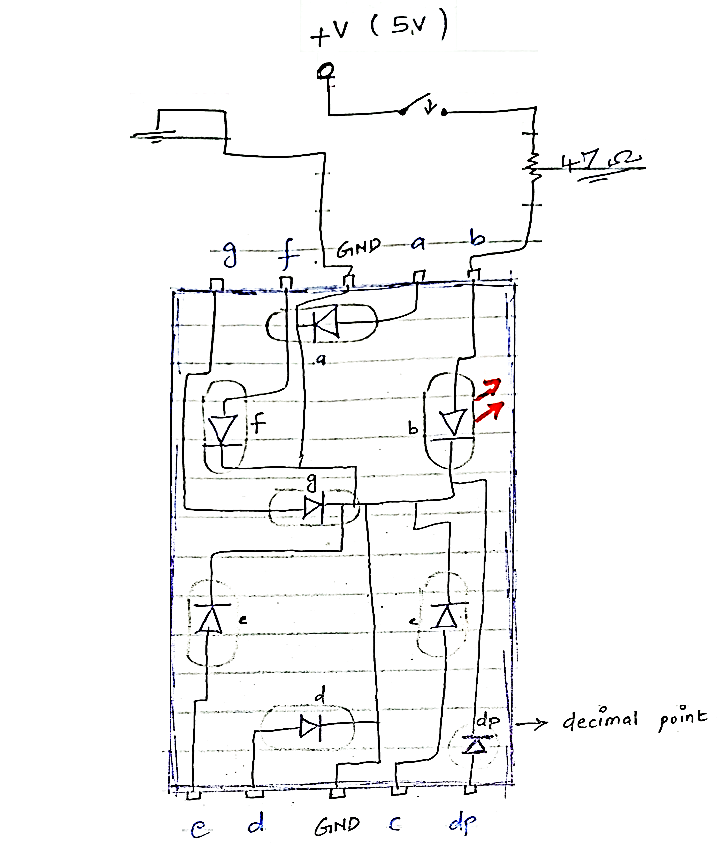 +V ( 5V )
47 Ω
g f GND a b
a
f
b
g
e
c
d
dp
→ decimal point
e d GND c dp